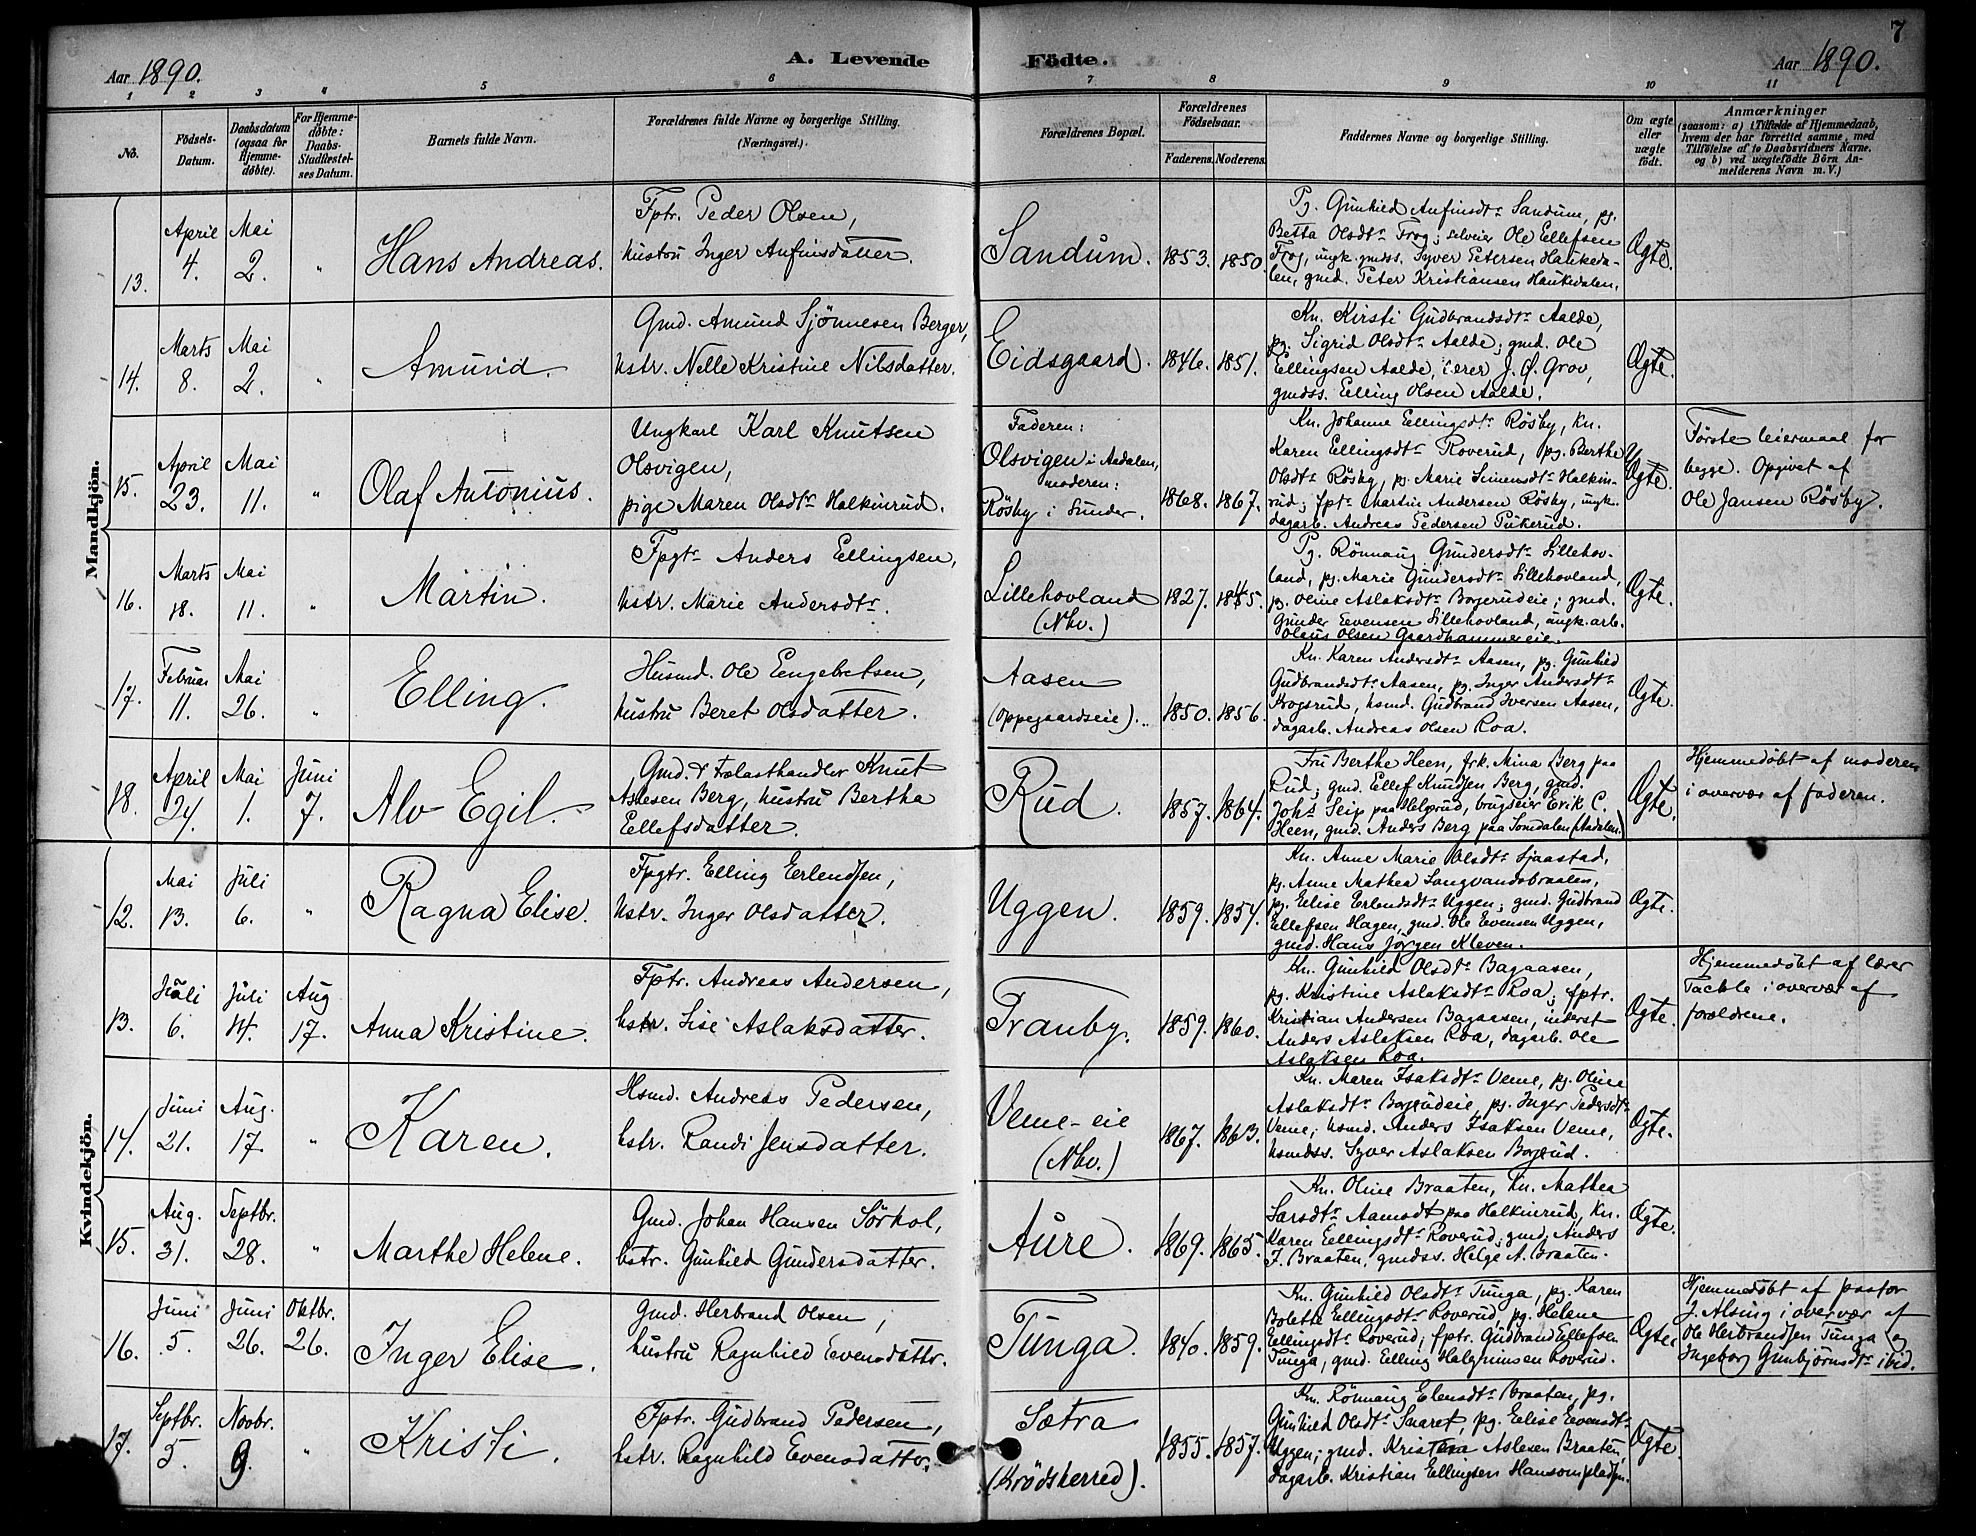 7
Aar 1890.
A. Levende Födte.
Aar 1890.
1 2 3 4 5 6 7 8 9 10 11
No.
Födsels-
Datum.
Daabsdatum
(ogsaa for
Hjemme-
døbte).
For Hjemme-
døbte:
Daabs-
Stadfæstel-
ses Datum.
Barnets fulde Navn.
Forældrenes fulde Navne og borgerlige Stilling.
(Næringsvei.)
Forældrenes Bopæl.
Forældrenes
Födselsaar.
Faderens. Moderens.
Faddernes Navne og borgerlige Stilling.
Om ægte
eller
uægte
født.
Anmærkninger
(saasom: a) i Tilfælde af Hjemmedaab,
hvem der har forrettet samme, med
Tilføielse af to Daabsvidners Navne,
og b) ved uægtefødte Börn An-
melderens Navn m. V.)
Mandkjön.
13.
April
4.
Mai
2.
"
Hans Andreas.
Fptr. Peder Olsen,
hustru Inger Anfinsdatter.
Sandum.
1853.
1850
Pg. Gunhild Anfinsdtr Sandum, pg.
Betta Olsdtr Frog; selveier Ole Ellefsen
Frog, ungk. gmdss. Syver Petersen Haukeda-
len, gmd. Peter Kristiansen Haukedalen.
Ægte.
14.
Marts
8.
Mai
2.
"
Amund.
Gmd. Amund Sjönnesen Berger,
hstr. Nelle Kristine Nilsdatter.
Eidsgaard.
1846.
1851.
Kn. Kirsti Gudbrandsdtr Aalde,
pg. Sigrid Olsdtr Aalde; gmd. Ole
Ellingsen Aalde, lærer J. Ø. Grov,
gmdss. Elling Olsen Aalde.
Ægte.
15.
April
23.
Mai
11.
"
Olaf Antonius.
Ungkarl Karl Knutsen
Olsvigen,
pige Maren Olsdtr Halkinrud.
Faderen:
Olsvigen i Aadalen,
moderen:
Røsby i Sunder.
1868.
1867.
Kn. Johanne Ellingsdtr Røsby, kn.
Karen Ellingsdtr Roverud, pg. Berthe
Olsdtr Røsby, pg. Marie Simensdtr Halkin-
rud; fptr Martin Andersen Røsby, ungk.
dagarb. Andreas Pedersen Pukerud.
U
Ægte.
Første leiermaal for
begge. Opgivet af
Ole Jansen Røsby.
16.
Marts
18.
Mai
11.
"
Martin.
Fpgtr Anders Ellingsen,
hstr. Marie Andersdtr.
Lillehovland
(Nhv.)
1827.
1845.
Pg. Rönnaug Gundersdtr Lillehov-
land, pg. Marie Gundersdtr Lillehovland,
pg. Oline Aslaksdtr Borgerudeie; gmd.
Gunder Evensen Lillehovland, ungk. arb.
Olaus Olsen Gaardhammereie.
Ægte.
17.
Februar
11.
Mai
26.
"
Elling.
Husmd. Ole Engebretsen,
hustru Beret Olsdatter.
Aasen
(Oppegaardseie).
1850.
1856.
Kn. Karen Andersdtr Aasen, pg. Gunhild
Gudbrandsdtr Aasen, pg. Inger Andersdtr
Krogsrud, husmd. Gudbrand Iversen Aasen,
dagarb. Andreas Olsen Roa.
Ægte.
18.
April
24.
Mai
1.
Juni
7.
Alv Egil.
Gmd. & Fælasthandler Knut
Aslesen Berg, hustru Bertha
Ellefsdatter.
Rud.
1857.
1864.
Fru Berthe Heen, frk. Mina Berg paa
Rud; gmd. Ellef Knudsen Berg, gmd.
Johs. Seip paa Helgerud, brugseier Erik C.
Heen, gmd. Anders Berg paa Somdalen (Aadalen)
Ægte.
Hjemmedøbt af moderen
i overvær af faderen.
Kvindekjön.
12.
Mai
13.
Juli
6.
"
Ragna Elise.
Fpgtr. Elling Erlendsen,
hstr. Inger Olsdatter.
Uggen.
1859.
1854.
Kn. Anne Marie Olsdtr Sjaastad,
pg. Anne Mathea Langvandsbraaten,
pg. Elise Erlendsdtr Uggen; gmd. Gudbrand
Ellefsen Hagen, gmd. Ole Evensen Uggen,
gmd. Hans Jørgen Kleven.
Ægte.
13.
Juli
6.
Juli
14.
Aug
17.
Anna Kristine.
Fptr. Andreas Andersen,
hstr. Lise Aslaksdatter.
Tranby.
1859.
1860.
Kn. Gunhild Olsdtr Bagaasen,
pg. Kristine Aslaksdtr Roa; fptr.
Kristian Andersen Bagaasen, inderst
Anders Aslaksen Roa, dagarb. Ole
Aslaksen Roa.
Ægte.
Hjemmedøbt af lærer
Tachle i overvær af
forældrene.
14.
Juni
21.
Aug.
17.
"
Karen.
Hsmd. Andreas Pedersen,
hstr. Randi Jensdatter.
Veme-eie
(Nhv.)
1867.
1863.
Kn. Maren Isaksdtr Veme, pg. Oline
Aslaksdtr Borgerudeie, pg. Inger Pedersdtr
Veme; husmd. Anders Isaksen Veme,
husmdss. Syver Aslaksen Borgerud.
Ægte.
15.
Aug.
31.
Septbr.
28.
"
Marthe Helene.
Gmd. Johan Hansen Sörhol,
hstr. Gunhild Gundersdatter.
Aure.
1869.
1865.
Kn. Oline Braaten, kn. Mathea
Larsdtr Aamodt paa Halkinrud, kn.
Karen Ellingsdtr Roverud; gmd. Anders
J. Braaten, gmdss. Helge A. Braaten.
Ægte.
16.
Juni
5.
Juni
26.
Oktbr.
26.
Inger Elise.
Gmd. Herbrand Olsen,
hustru Ragnhild Evensdattr.
Tunga.
1840.
1859.
Kn. Gunhild Olsdtr Tunga, pg. Karen
Bolette Ellingsdtr Roverud, pg. Helene
Ellingsdtr Roverud; fptr. Gudbrand Ellefsen
Tunga, gmd. Elling Halgrimsen Roverud.
Ægte.
Hjemmedøbt af pastor
J. Alsing i overvær af
Ole Herbrandsen Tunga og
Ingeborg Gunbjørnsdtr ibid.
17.
Septbr.
5.
Novbr.
9.
"
Kristi.
Fptr. Gudbrand Pedersen,
hstr. Ragnhild Evensdatter.
Sætra
(Krødsherred).
1855.
1857.
Kn. Rönnaug Elensdtr Braaten, pg.
Gunhild Olsdtr Snaret, pg. Elise Evensdtr
Uggen; gmd. Kristen Aslesen Braaten,
dagarb. Kristian Ellingsen Hansompladsen.
Ægte